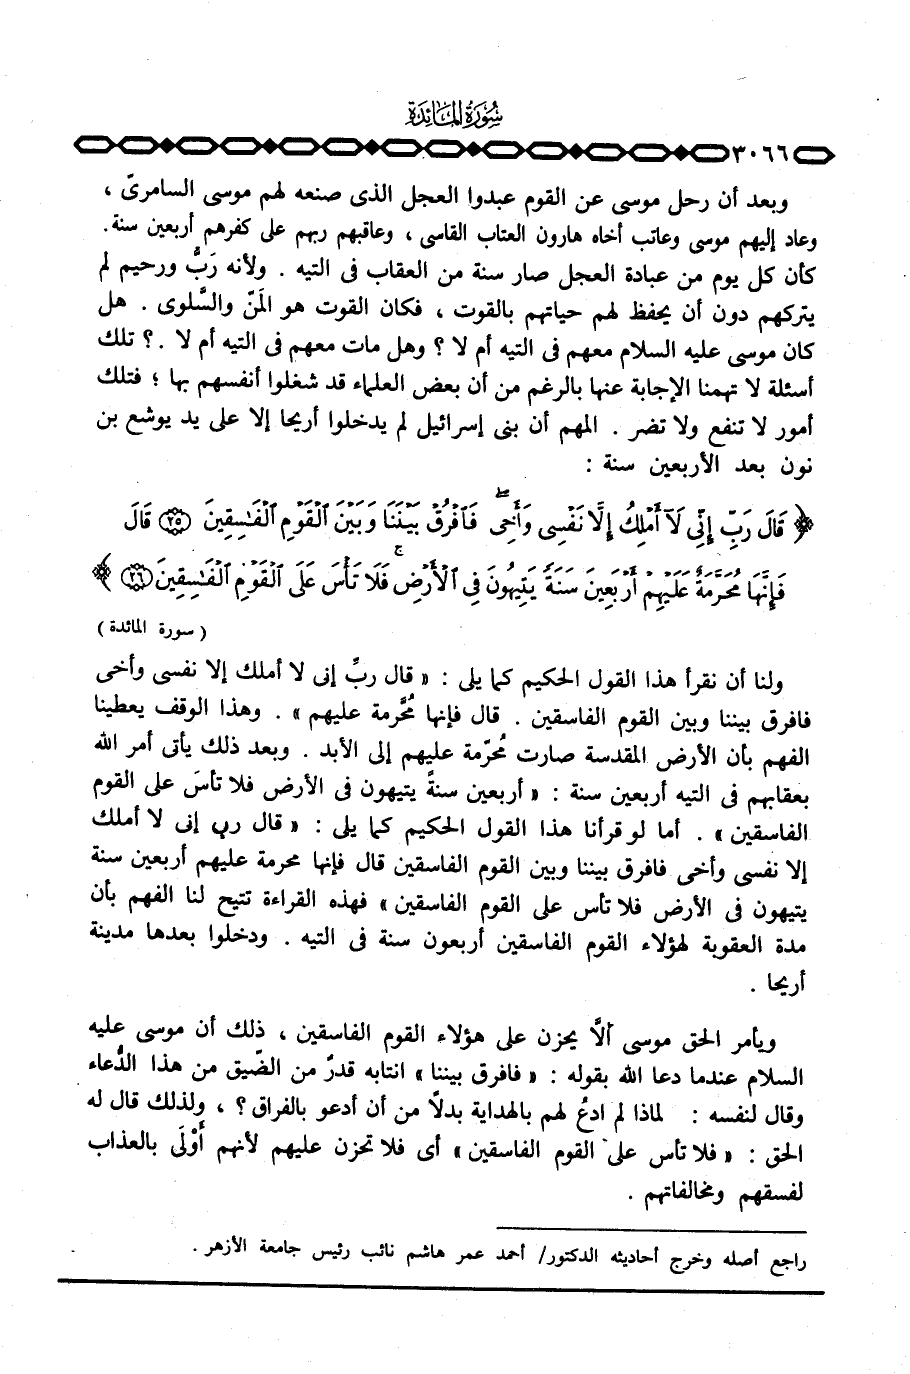 سُورَةُ المَائِدَةِ
٣٠٦٦
وبعد أن رحل موسى عن القوم عبدوا العجل الذى صنعه لهم موسى السامرىّ ،
وعاد إليهم موسى وعاتب أخاه هارون العتاب القاسى ، وعاقبهم ربهم على كفرهم أربعين سنة .
كأن كل يوم من عبادة العجل صار سنة من العقاب فى التيه . ولأنه رَبٌّ ورحيم لم
يتركهم دون أن يحفظ لهم حياتهم بالقوت ، فكان القوت هو المَنّ والسَّلوى . هل
كان موسى عليه السلام معهم فى التيه أم لا ؟ وهل مات معهم فى التيه أم لا .؟ تلك
أسئلة لا تهمنا الإجابة عنها بالرغم من أن بعض العلماء قد شغلوا أنفسهم بها ؛ فتلك
أمور لا تنفع ولا تضر . المهم أن بنى إسرائيل لم يدخلوا أريحا إلا على يد يوشع بن
نون بعد الأربعين سنة :
﴿ قَالَ رَبِّ إِنِّى لَآ أَمْلِكُ إِلَّا نَفْسِى وَأَخِىۖ فَٱفْرُقْ بَيْنَنَا وَبَيْنَ ٱلْقَوْمِ ٱلْفَـٰسِقِينَ ۝٢٥ قَالَ
فَإِنَّهَا مُحَرَّمَةٌ عَلَيْهِمْ أَرْبَعِينَ سَنَةً يَتِيهُونَ فِى ٱلْأَرْضِۚ فَلَا تَأْسَ عَلَى ٱلْقَوْمِ ٱلْفَـٰسِقِينَ ۝٢٦ ﴾
( سورة المائدة )
ولنا أن نقرأ هذا القول الحكيم كما يلى : « قال ربِّ إنى لا أملك إلا نفسى وأخى
فافرق بيننا وبين القوم الفاسقين . قال فإنها مُحَّرمة عليهم » . وهذا الوقف يعطينا
الفهم بأن الأرض المقدسة صارت مُحرّمة عليهم إلى الأبد . وبعد ذلك يأتى أمر الله
بعقابهم فى التيه أربعين سنة : « أربعين سنةً يتيهون فى الأرض فلا تأسَ على القوم
الفاسقين » . أما لو قرأنا هذا القول الحكيم كما يلى : « قال رب إنى لا أملك
إلا نفسى وأخى فافرق بيننا وبين القوم الفاسقين قال فإنها محرمة عليهم أربعين سنة
يتيهون فى الأرض فلا تأس على القوم الفاسقين » فهذه القراءة تتيح لنا الفهم بأن
مدة العقوبة لهؤلاء القوم الفاسقين أربعون سنة فى التيه . ودخلوا بعدها مدينة
أريحا .
ويأمر الحق موسى ألَّا يحزن على هؤلاء القوم الفاسقين ، ذلك أن موسى عليه
السلام عندما دعا الله بقوله : « فافرق بيننا » انتابه قدرٌ من الضّيق من هذا الدُّعاء
وقال لنفسه : لماذا لم ادعُ لهم بالهداية بدلاً من أن أدعو بالفراق ؟ ، ولذلك قال له
الحق : « فلا تأس على القوم الفاسقين » أى فلا تحزن عليهم لأنهم أَوْلَى بالعذاب
لفسقهم ومخالفاتهم .
راجع أصله وخرج أحاديثه الدكتور/ أحمد عمر هاشم نائب رئيس جامعة الأزهر .